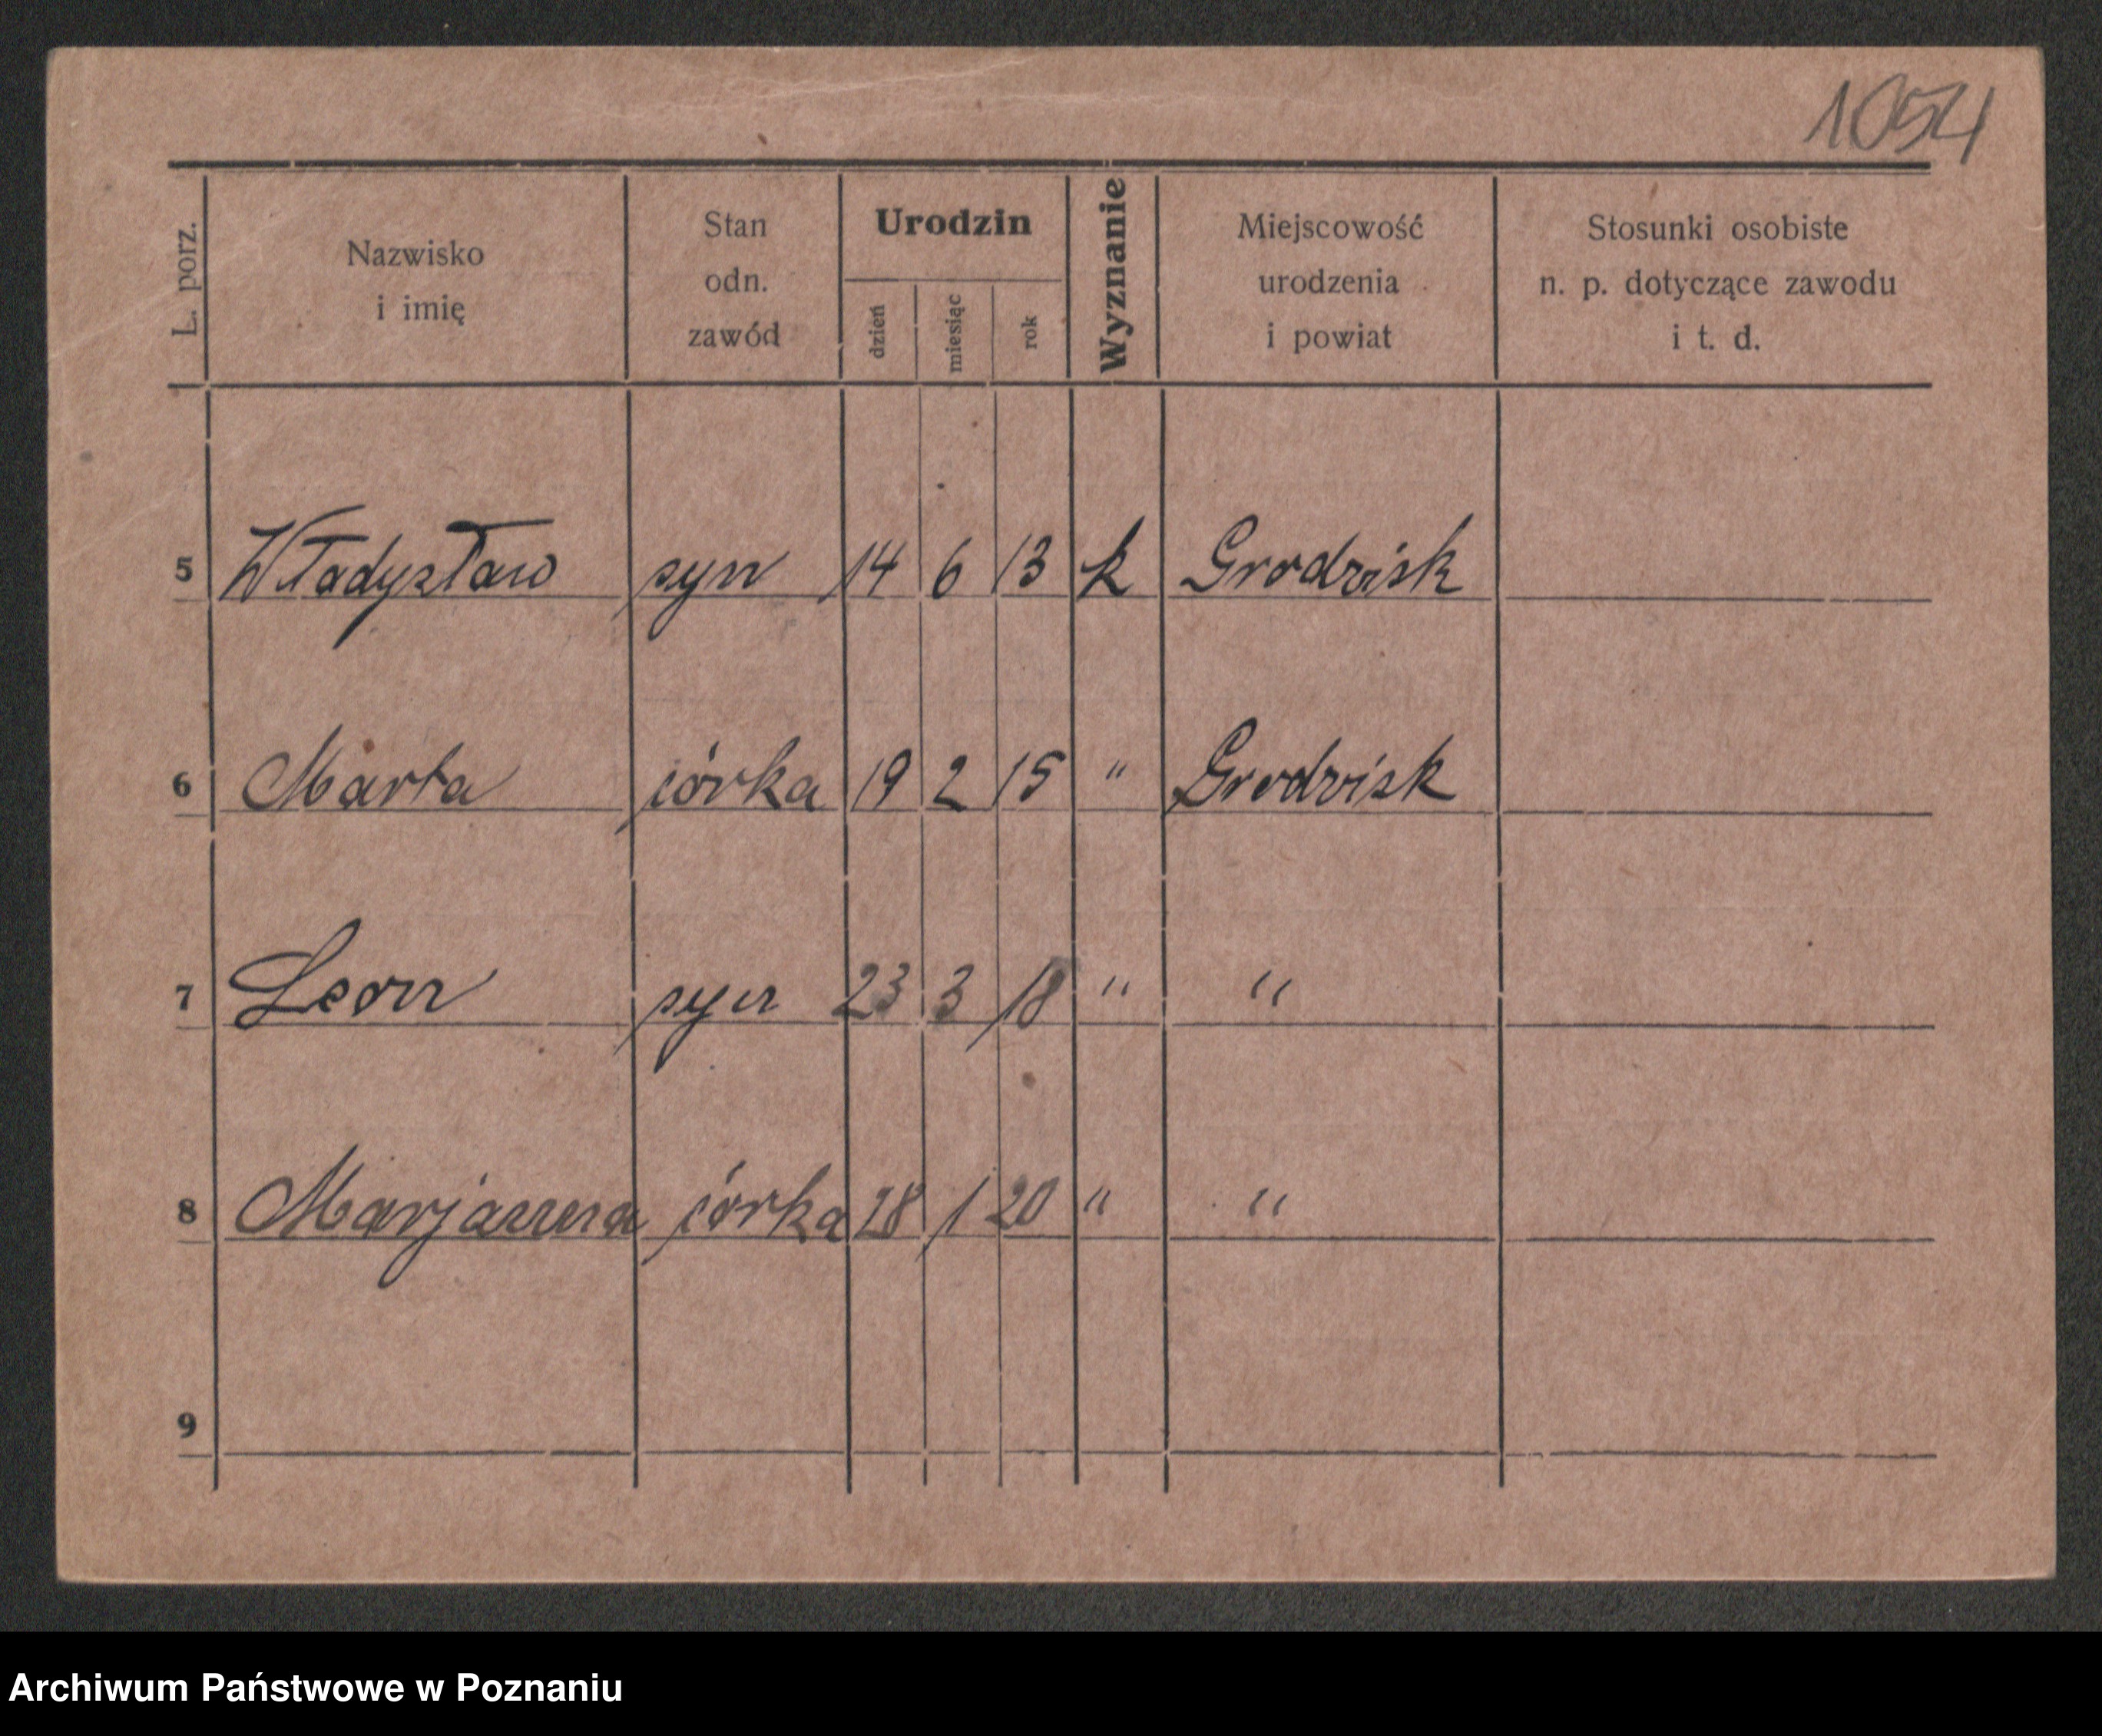 1054
L. porz.
Nazwisko
i imię
Stan
odn.
zawód
Urodzin
dzień
miesiąc
rok
Wyznanie
Miejscowość
urodzenia
i powiat
Stosunki osobiste
n. p. dotyczące zawodu
i t. d.
5 Władysław syn 14 6 13 k Grodzisk
6 Marta córka 19 2 15 " Grodzisk
7 Leon syn 23 3 18 " "
8 Marjanna córka 28 1 20 " "
9
Archiwum Państwowe w Poznaniu